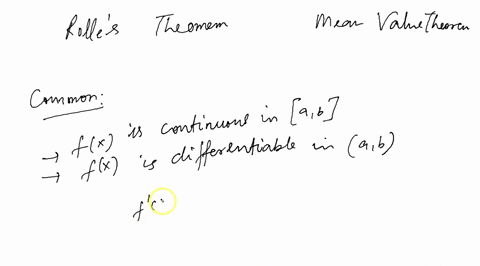 Rolle's Theomem Mean Value Theorem
Common:
→ f(x) is continuous in [a,b]
→ f(x) is differentiable in (a,b)
f'c